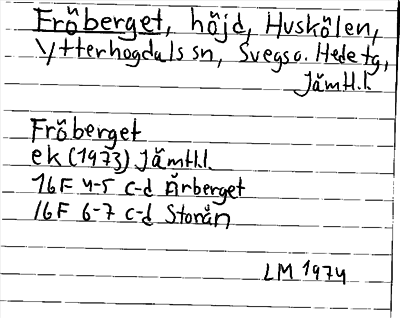 Fröberget, höjd, Huskölen,
Ytterhogdals sn, Svegs o. Hede tg,
Jämtl.l.
Fröberget
ek (1973) Jämtl.l.
16F 4-5 c-d Årberget
16F 6-7 c-d Storån
LM 1974